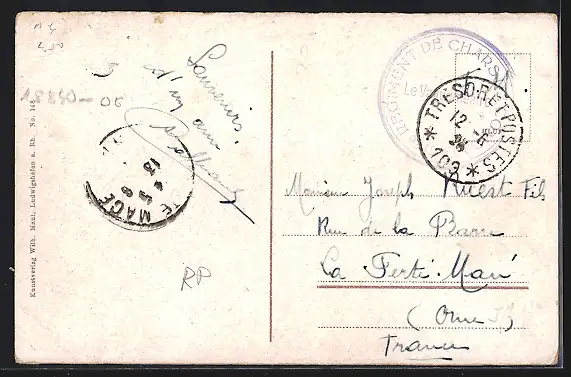 18840-05
Souvenirs
d'un ami
Kunstverlag Wilh. Haut, Ludwigshafen a. Rh. No. 148
MACÉ
RP
RÉGIMENT DE CHARS
Le Va
* TRESOR ET POSTES *
12
103
Monsieur Joseph Huest Fils
Rue de la Barre
La Ferté-Macé
(Orne)
France